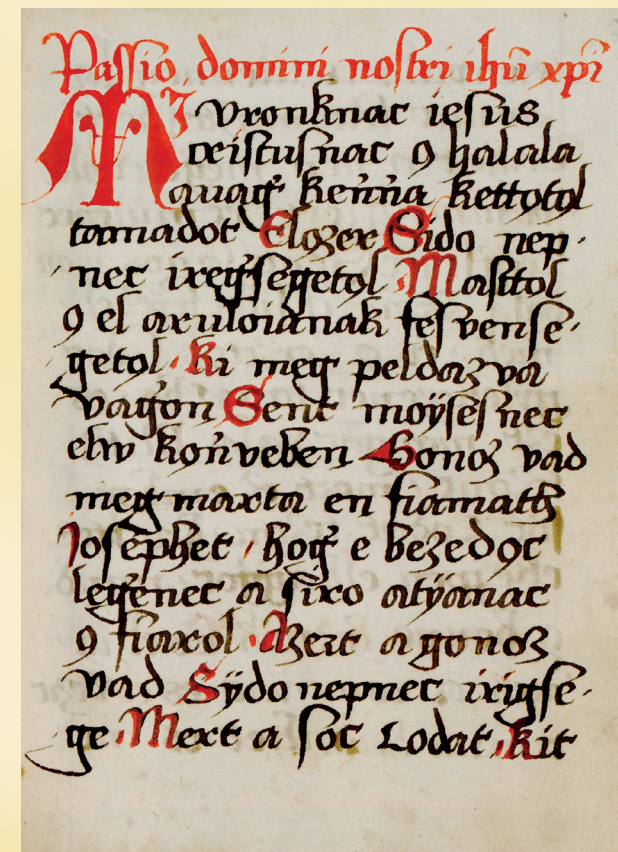 Passio domini nostri ihū xpī
Mӡ vronknac iesus
cristusnac ꝯ halala
auagẏ kenna kettotol
tamadot Elozer Sido nep
nec iregsegetol Masttol
ꝯ el aruloianak fesvense
getol Ki meg peldazva
vagon Sent moÿsesnec
elw konveben Gonoz vad
meg marta en fiamath
Josephet / hog e bezedꝯc
legenec a siro atÿanac
ꝯ fiarol Azert a gonoz
vad Sÿdo nepnec irigse
ge Mert a soc Lodat kit